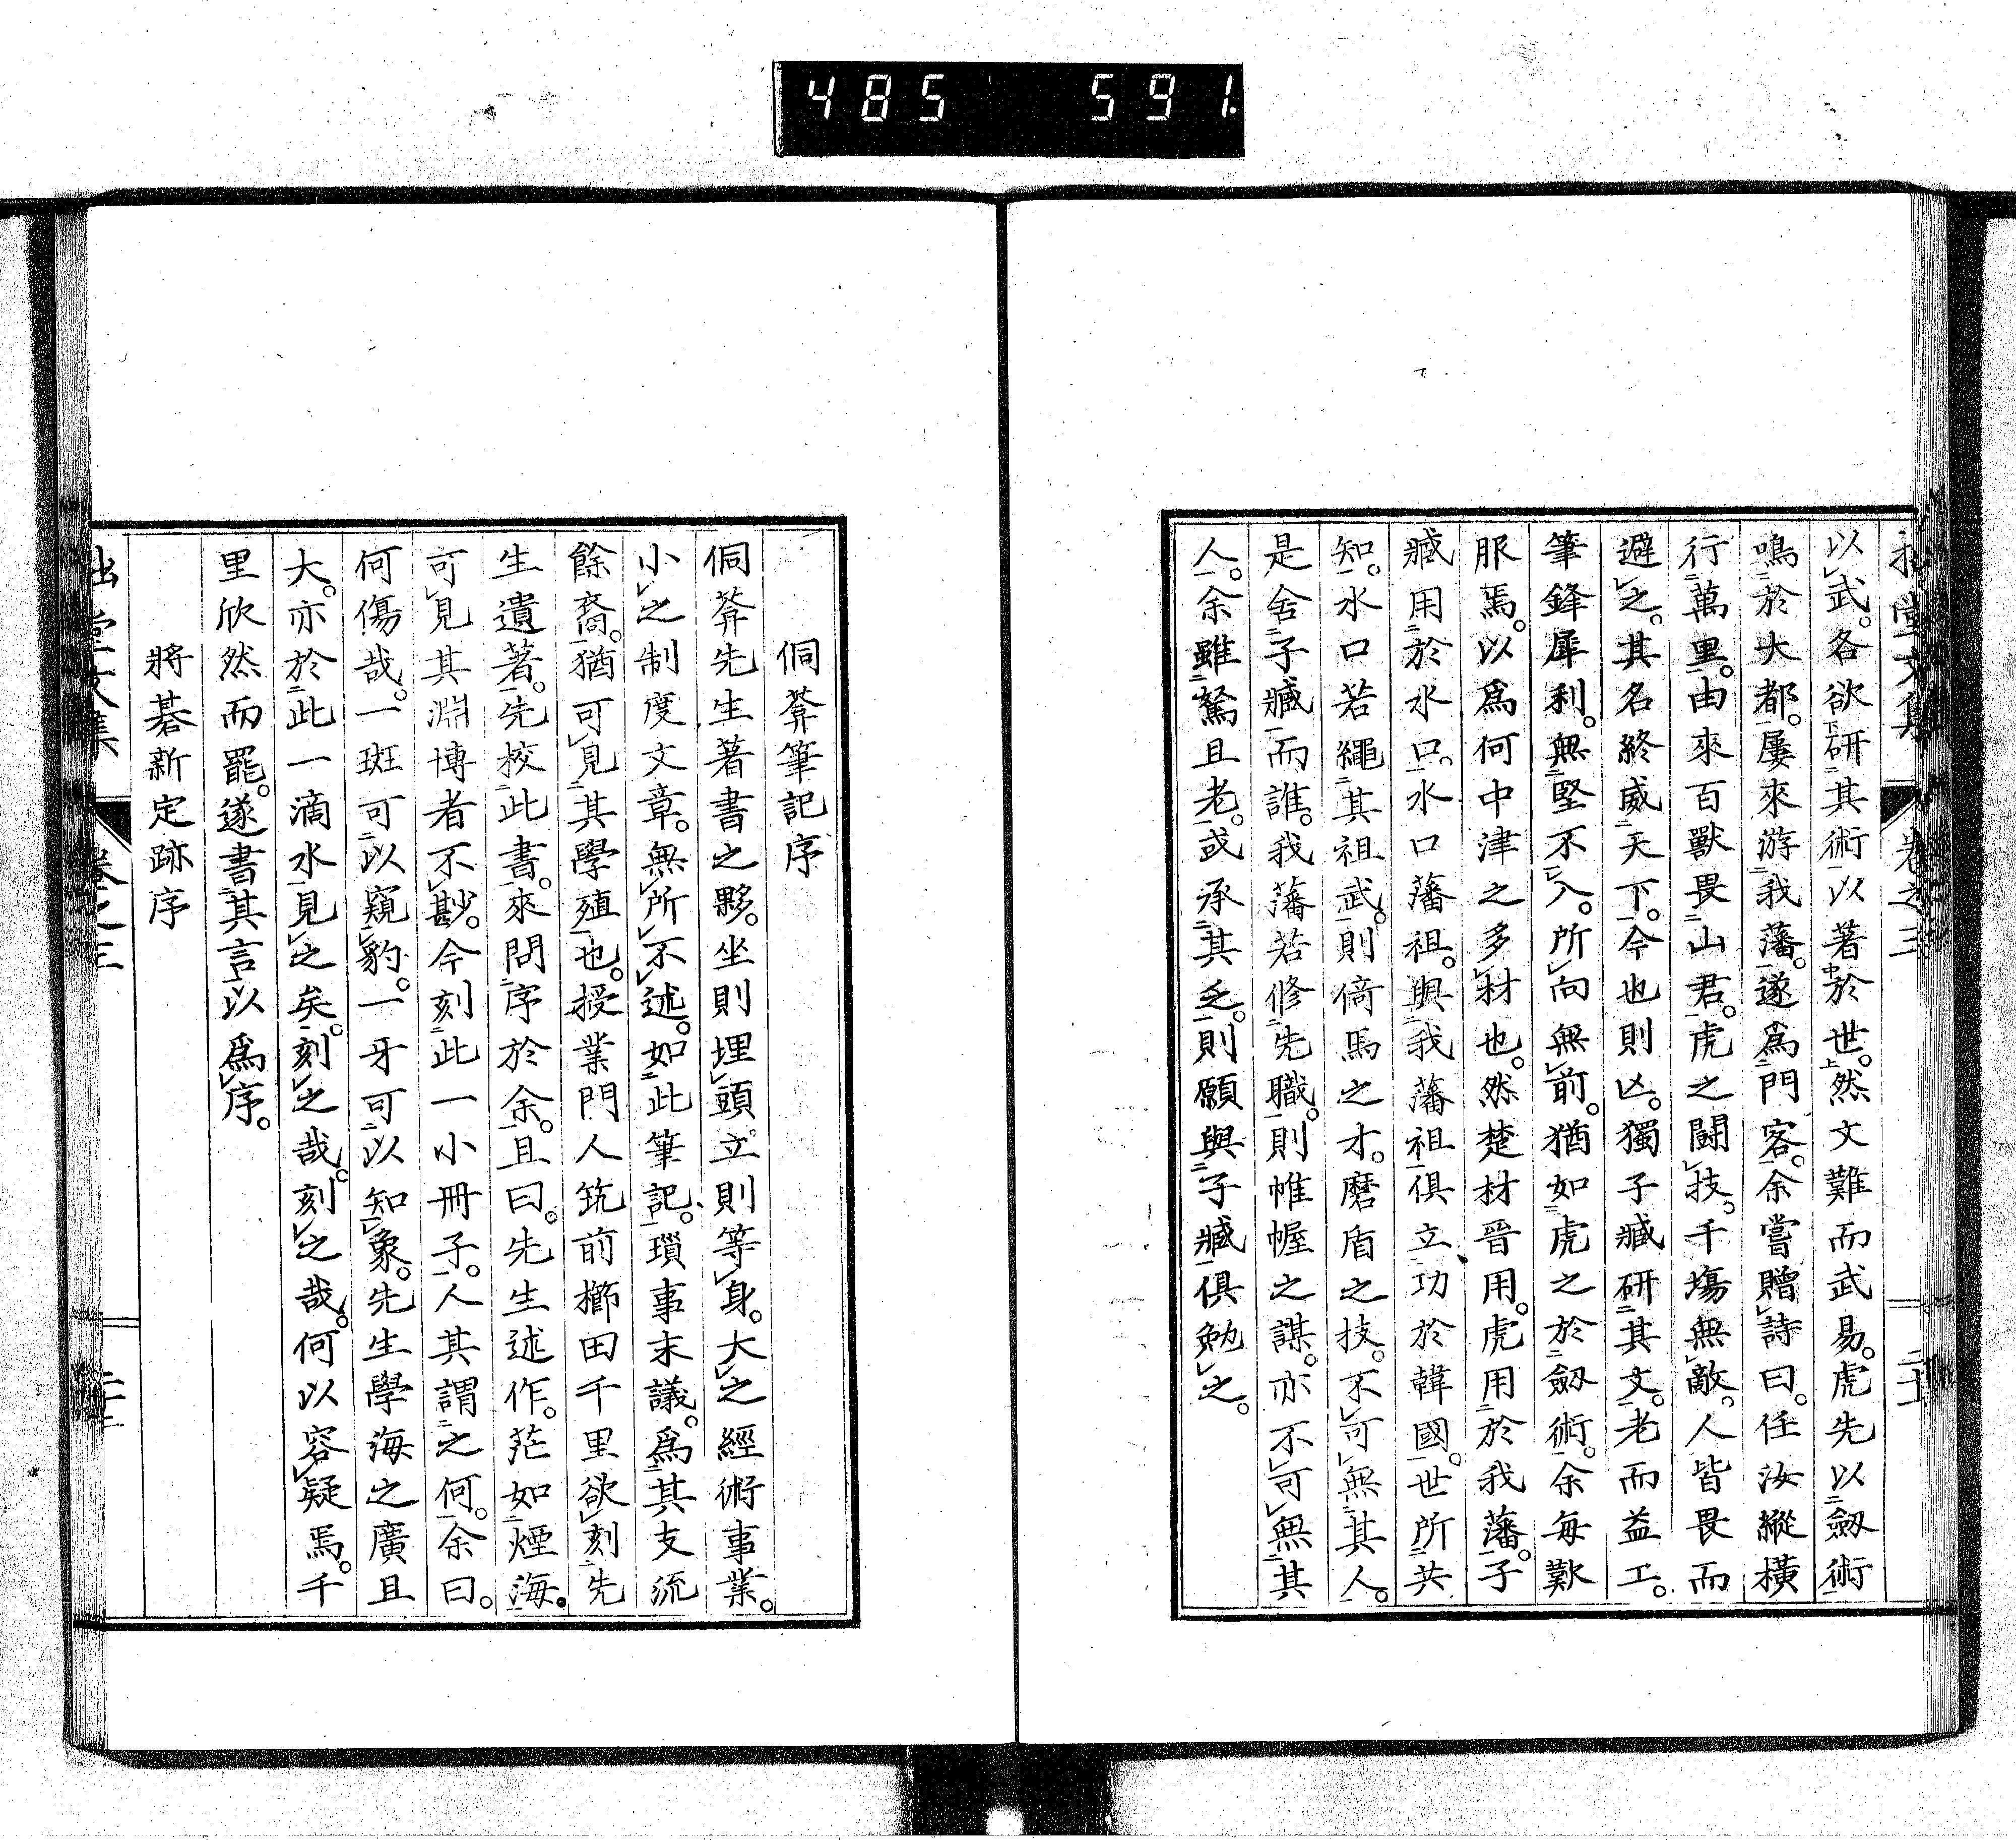 485 591
文集 卷之三
以武。各欲研其術以著於世。然文難而武易。虎先以劔術
鳴於大都。屢來游我藩。遂爲門客。余嘗贈詩曰。任汝縱橫
行萬里。由來百獸畏山君。虎之鬪技。千塲無敵。人皆畏而
避之。其名終威天下。今也則亾。獨子臧研其文。老而益工。
筆鋒犀利。無堅不入。所向無前。猶如虎之於劔術。余每歎
服焉。以爲何中津之多材也。然楚材晉用。虎用於我藩。子
臧用於水口。水口藩祖。與我藩祖俱立功於韓國。世所共
知。水口若繩其祖武。則倚馬之才。磨盾之技。不可無其人。
是舍子臧而誰。我藩若修先職。則帷幄之謀。亦不可無其
人。余雖駑且老。或承其乏。則願與子臧俱勉之。
侗葊筆記序
侗葊先生著書之夥。坐則埋頭立則等身。大之經術事業。
小之制度文章。無所不述。如此筆記。瑣事末議。爲其支流
餘裔。猶可見其學殖也。授業門人筑前櫛田千里欲刻先
生遺著。先挍此書。來問序於余。且曰。先生述作。茫如煙海。
可見其淵博者不尠。今刻此一小冊子。人其謂之何。余曰。
何傷哉。一斑可以窺豹。一牙可以知象。先生學海之廣且
大。亦於此一滴水見之矣。刻之哉。刻之哉。何以容疑焉。千
里欣然而罷。遂書其言以爲序。
將碁新定跡序
堂文集 卷之三